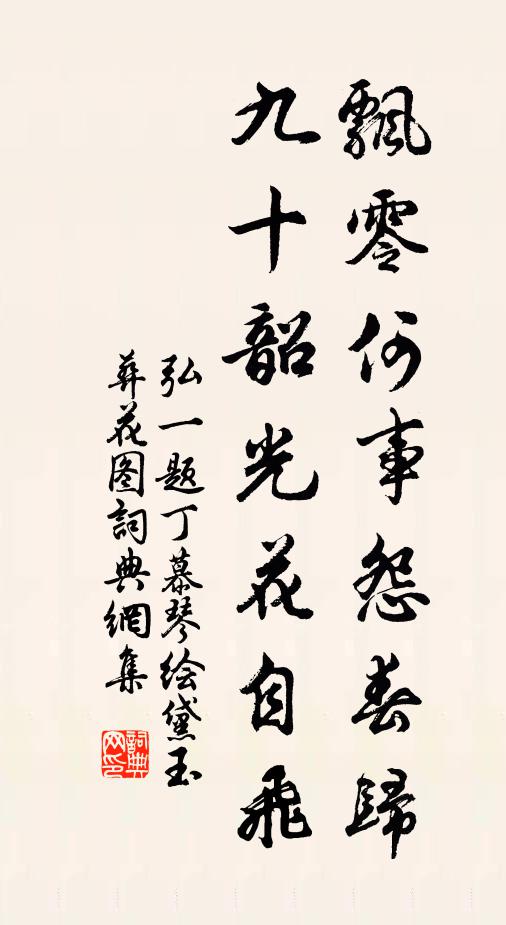 飄零何事怨春歸
九十韶光花自飛
弘一题丁慕琴绘黛玉
葬花图詞典網集
詞典网印